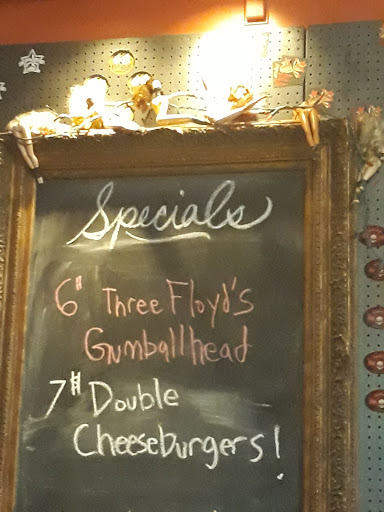 Specials
6" Three Floyd's
Gumballhead
7# Double
Cheeseburgers!